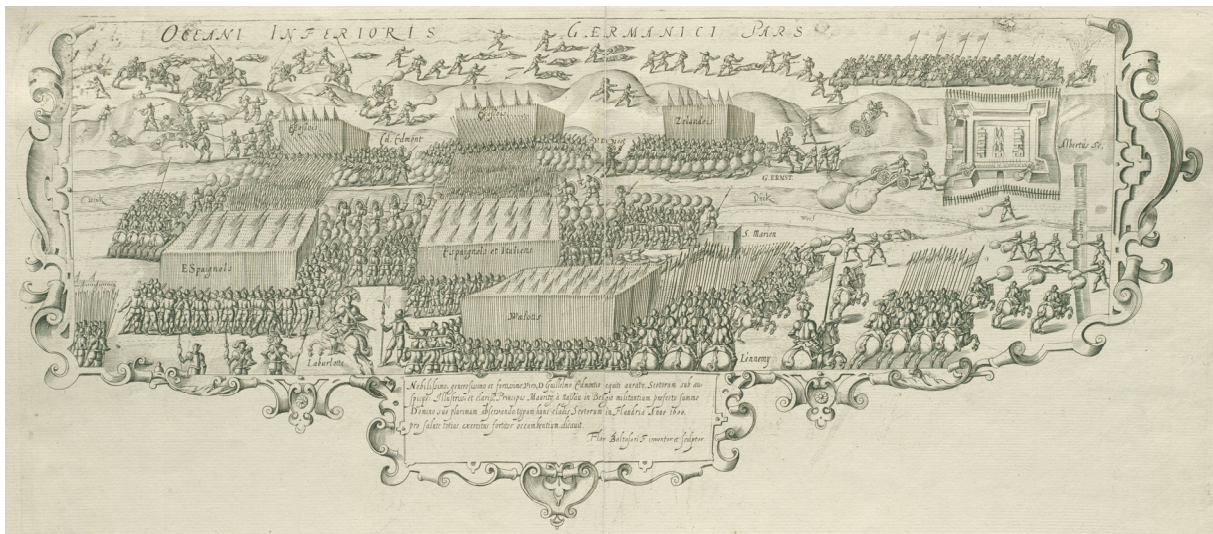 OCEANI INFERIORIS GERMANICI PARS
Escossois
Zelandois
Ed. Edmont
G. ERNST.
Albertus So.
Dijck
S. Marien
ESpaignols
Espaignols et Italiens
Walons
Laburlotte
L'ennemy
Nobilissimo, generosissimo et fortissimo Viro, D. Guilielmo Edmontio equiti aurato, Scotorum sub au-
spicijs Illustriss. et clariss. Principis Mauritij à Nassau in Belgio militantium praefecto summo
Domino suo plurimum observando typum hunc cladis Scotorum in Flandria Anno 1600.
pro salute totius exercitus fortiter occumbentium dicavit
Flor. Baltasari F. inventor et sculptor